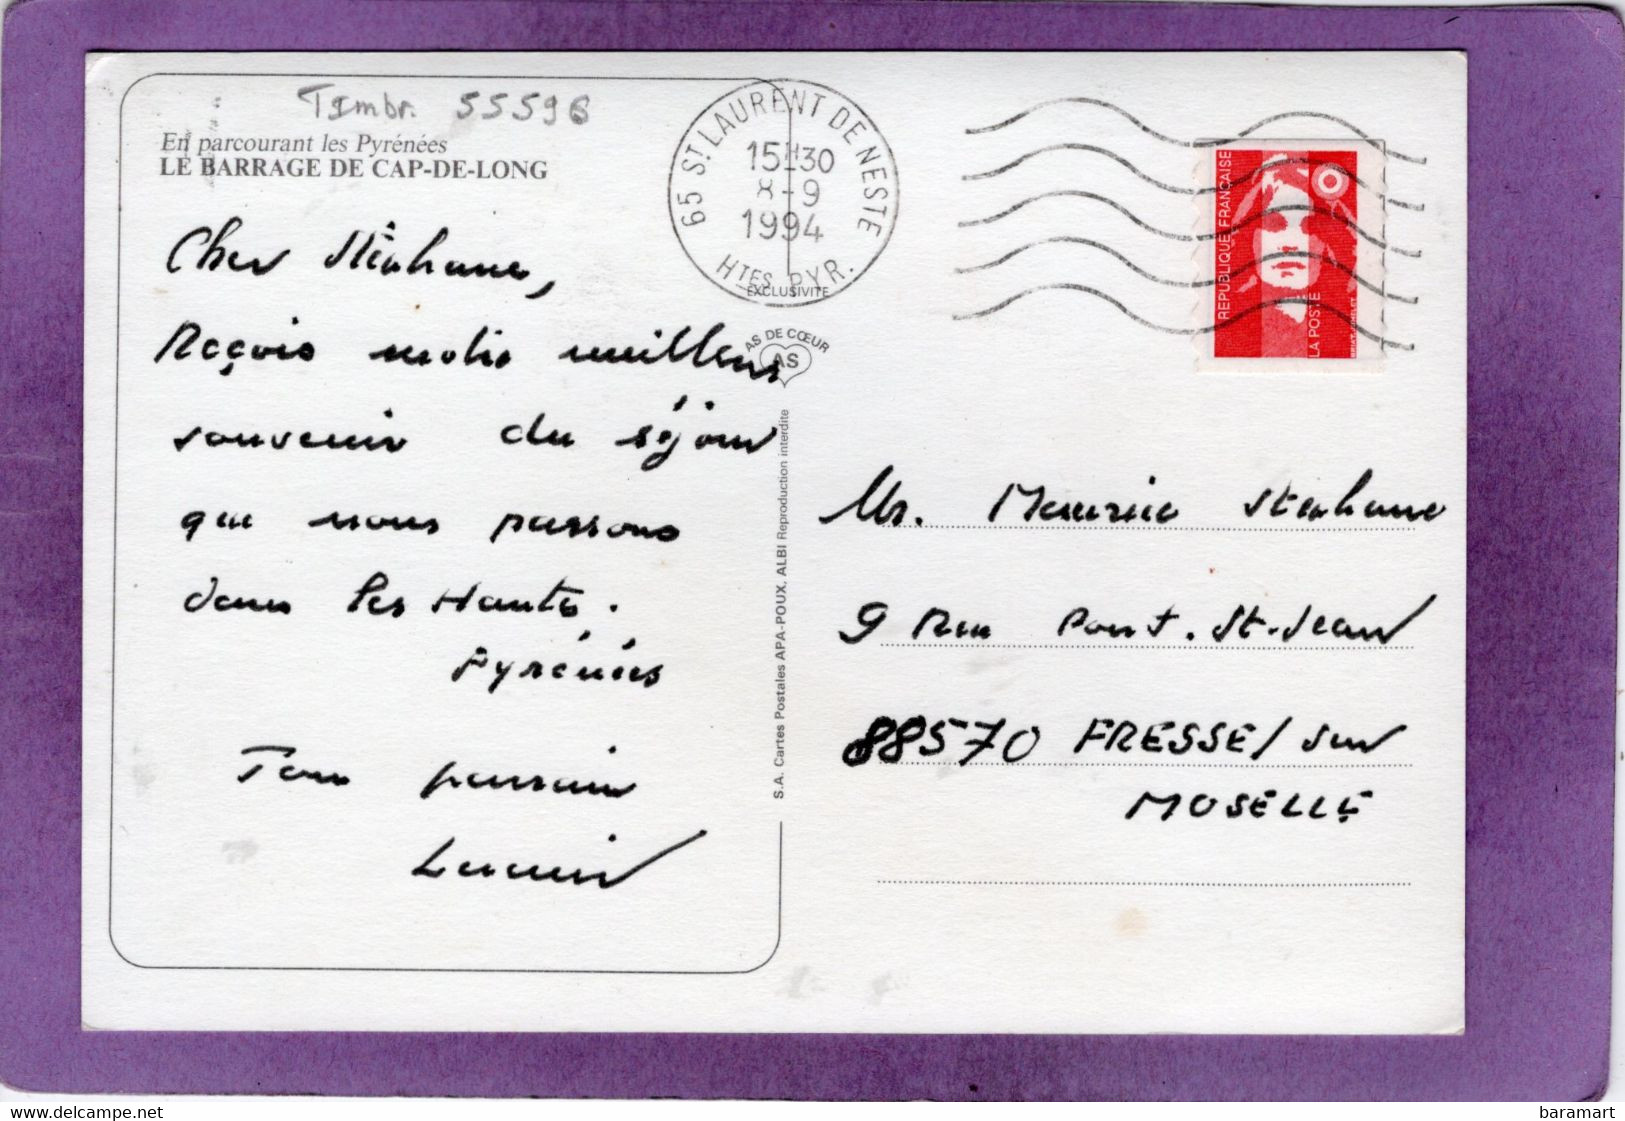 Timbr. 55596
En parcourant les Pyrénées
LE BARRAGE DE CAP-DE-LONG
Cher Stéphane,
Reçois notre meilleur
souvenir du séjour
que nous passons
dans les Hautes.
Pyrénées
Ton parrain
Lucien
65 ST LAURENT DE NESTE
15H30
8-9
1994
HTES PYR.
EXCLUSIVITE
AS DE CŒUR
AS
S.A. Cartes Postales APA-POUX, ALBI Reproduction interdite
REPUBLIQUE FRANÇAISE
LA POSTE
BRIAT-JUMELET
Mr. Maurice Stephane
9 Rue Pont. St-Jean
88570 FRESSE/sur
MOSELLE
www.delcampe.net
baramart